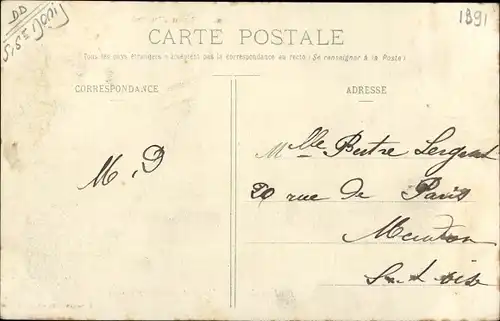 DD
S/S E DONI
1991
CARTE POSTALE
Tous les pays étrangers n'acceptent pas la correspondance au recto (Se renseigner à la Poste)
CORRESPONDANCE
ADRESSE
M. D
Mlle Sergent
20 rue de Paris